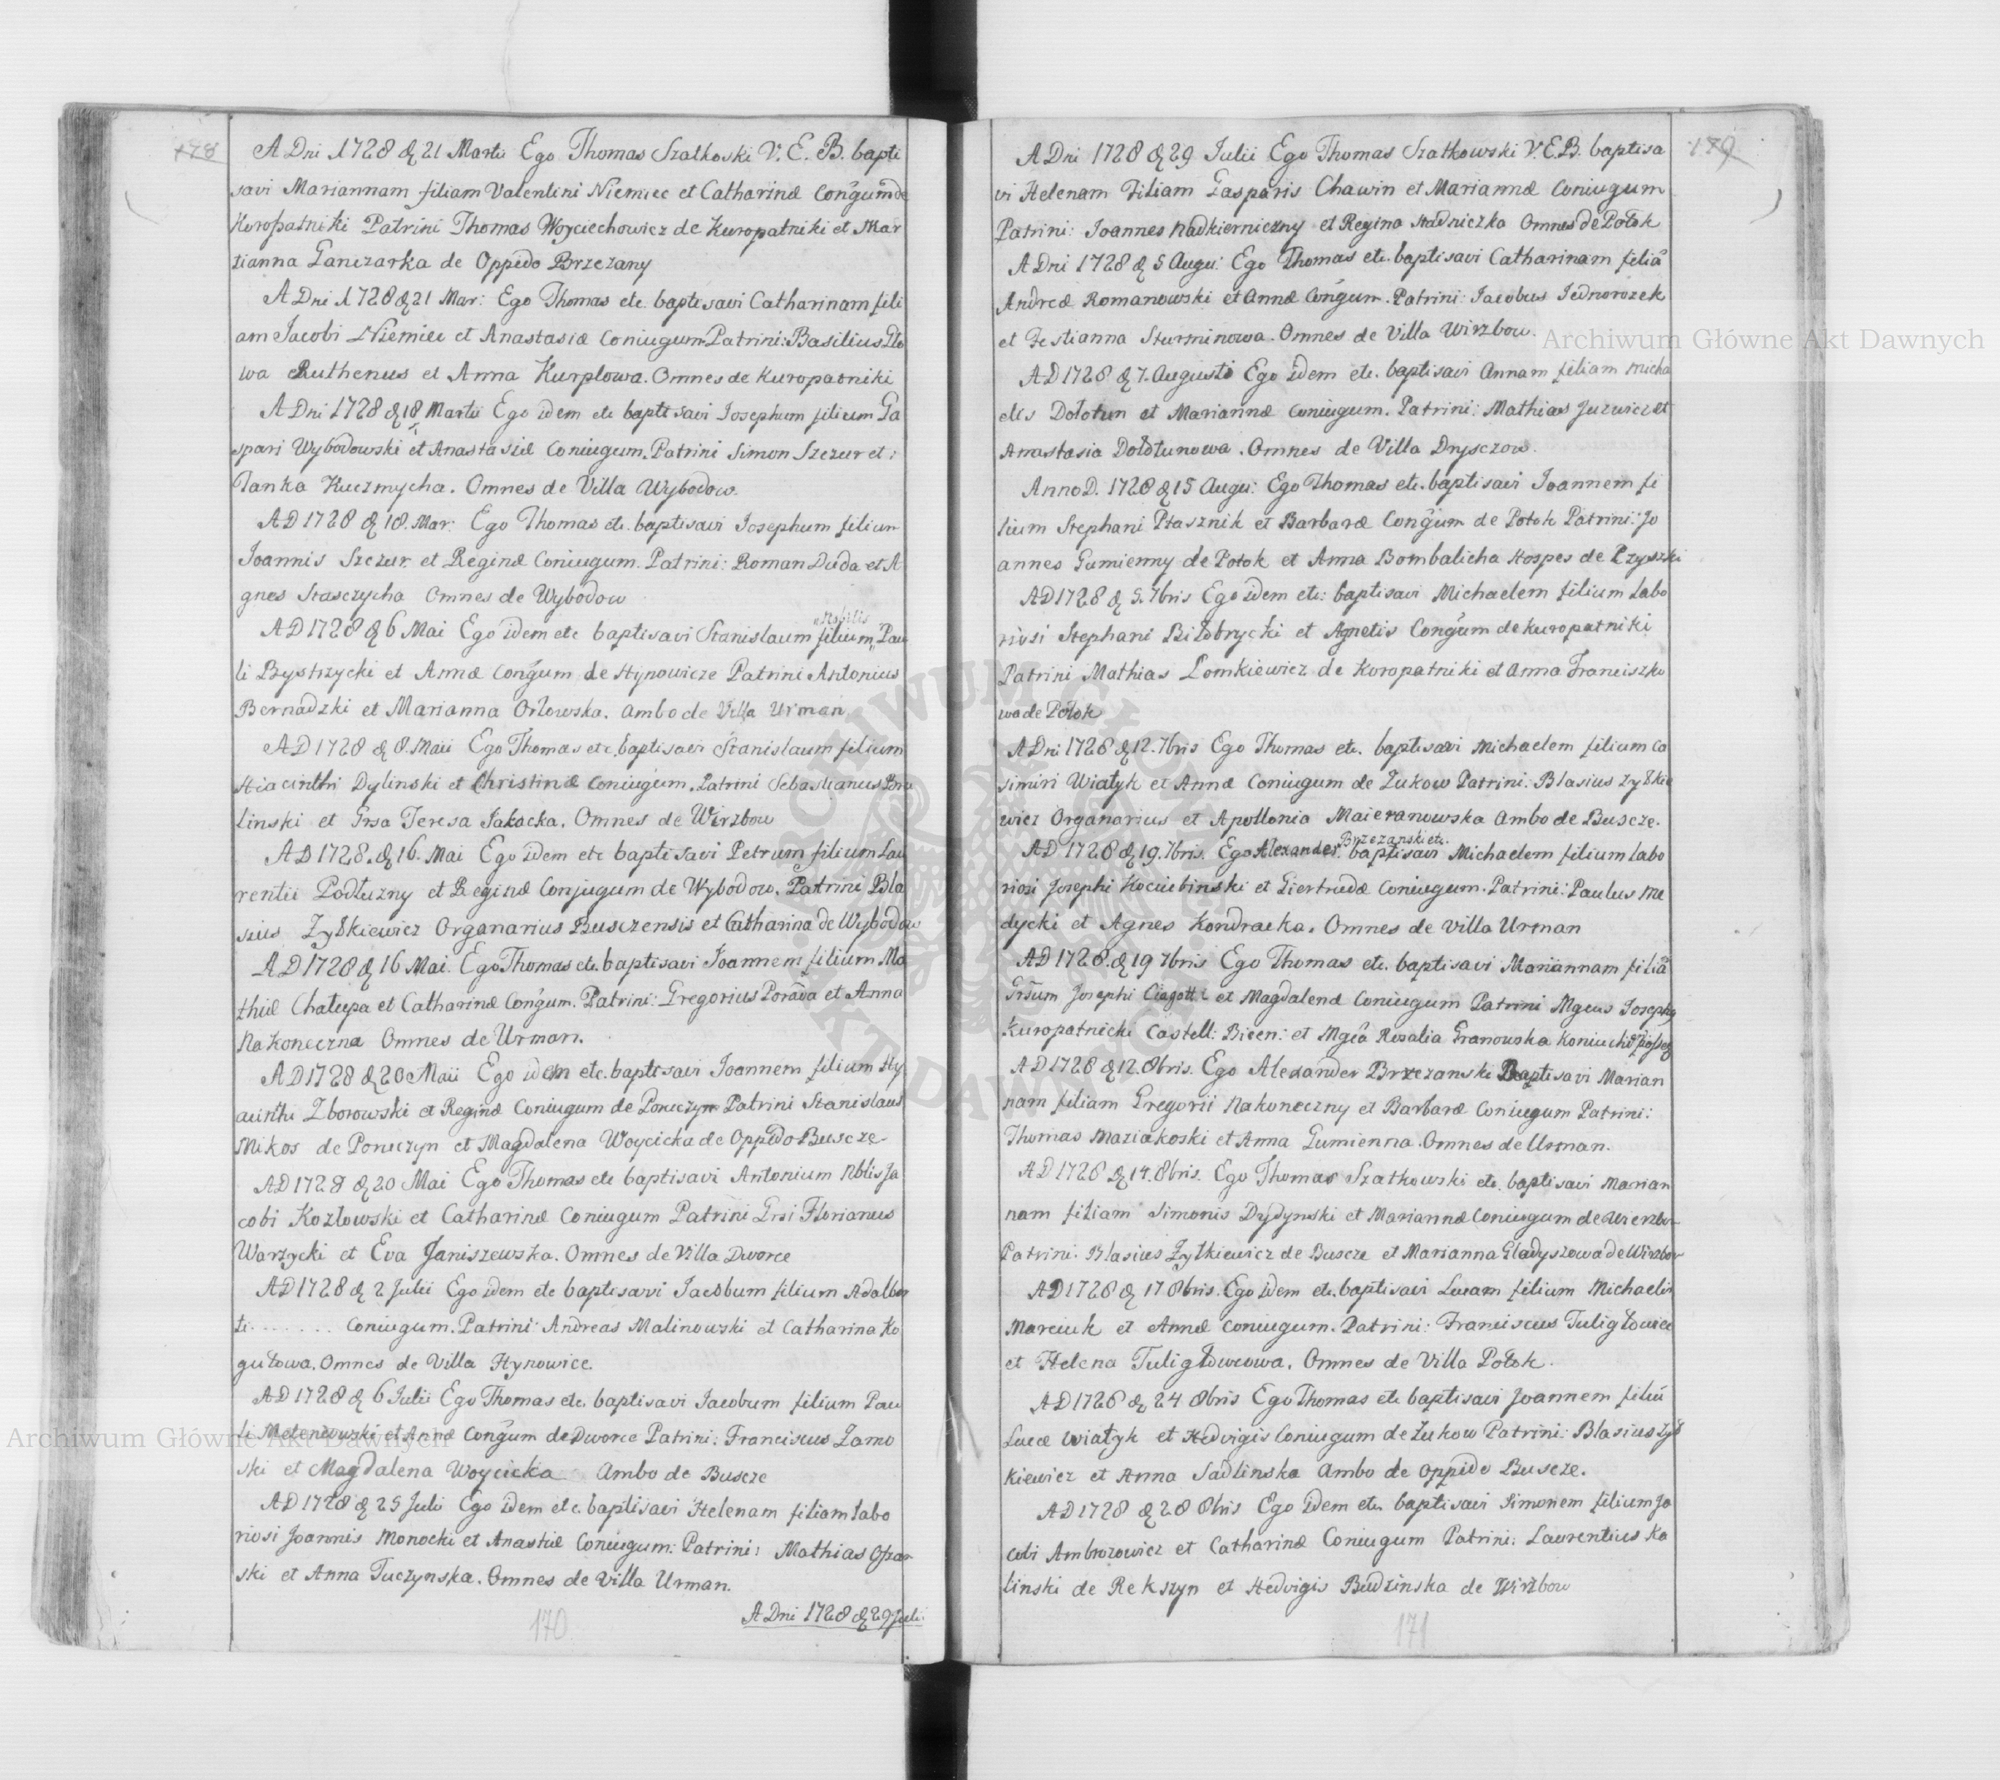 178
A Dni 1728 d 21 Martii Ego Thomas Szatkoski V. E. B. bapti
savi Mariannam filiam Valentini Niemiec et Catharinæ Congum de
Kuropatniki Patrini Thomas Woyciechowicz de Kuropatniki et Mar
tianna Ganczarka de Oppido Brzezany
A Dni 1728 d 21 Mar: Ego Thomas etc. baptisavi Catharinam fili
am Jacobi Niemiec et Anastasiæ Coniugum Patrini: Basilius
wa Ruthenus et Anna Kurplowa. Omnes de Kuropatniki
A Dni 1728 d 18 Martii Ego idem etc baptisavi Josephum filium Ga
spari Wybodowski et Anastasiæ Coniugum. Patrini Simon Szczur et
Tanka Kuczmycha. Omnes de Villa Wybodow.
A D 1728 d 18. Mar: Ego Thomas etc. baptisavi Josephum filium
Joannis Szczur et Reginæ Coniugum. Patrini: Roman Duda et A
gnes Stasczycha Omnes de Wybodow
Nobilis
A D 1728 d 6 Mai Ego idem etc baptisavi Stanislaum filium Pau
li Bystrzycki et Annæ Congum de Hynowicze Patrini Antonius
Bernadzki et Marianna Orlowska. Ambo de Villa Urman
A D 1728 d 8. Maii Ego Thomas etc. baptisavi Stanislaum filium
Hiacinthi Dylinski et Christinæ Coniugum. Patrini Sebastianus
linski et Grsa Teresa Jakacka. Omnes de Wirzbow
A D 1728. d 16. Mai Ego idem etc baptisavi Petrum filium Lau
rentii Podluzny et Reginæ Conjugum de Wybodow. Patrini Bla
sius Zytkiewicz Organarius Busczensis et Catharina de Wybodow
A D 1728 d 16 Mai. Ego Thomas etc. baptisavi Joannem filium Ma
thiæ Chalupa et Catharinæ Congum. Patrini: Gregorius Porada et Anna
Nakoneczna Omnes de Urman.
A D 1728 d 20 Maii Ego idem etc. baptisavi Joannem filium Hy
acinthi Zborowski et Reginæ Coniugum de Poruczyn Patrini Stanislaus
Mikos de Poruczyn et Magdalena Woycicka de Oppido Buscze
A D 1728 d 20 Mai Ego Thomas etc baptisavi Antonium Nblis Ja
cobi Kozlowski et Catharinæ Coniugum Patrini Grsi Florianus
Warzycki et Eva Janiszewska. Omnes de Villa Dworce
A D 1728 d 2 Julii Ego idem etc baptisavi Jacobum filium Adalber
ti ....... Coniugum. Patrini Andreas Malinowski et Catharina Ko
gutowa. Omnes de Villa Hynowice.
A D 1728 d 6 Julii Ego Thomas etc. baptisavi Jacobum filium Pau
li Melenowski et Annæ Congum de Dworce Patrini: Franciscus Zamo
ski et Magdalena Woycicka Ambo de Buscze
A D 1728 d 25 Julii Ego idem etc. baptisavi Helenam filiam labo
riosi Joannis Monocki et Anastiæ Coniugum: Patrini: Mathias
ski et Anna Tuczynska. Omnes de Villa Urman.
A Dni 1728 d 29 Juli:
170
179
A Dni 1728 d 29 Julii Ego Thomas Szatkowski V. E. B. baptisa
vi Helenam Filiam Gasparis Chawin et Mariannæ Coniugum
Patrini: Joannes Nadkierniczny et Regina Stadniczka Omnes de Potok
A Dni 1728 d 5 Augu: Ego Thomas etc. baptisavi Catharinam filiã
Andreæ Romanowski et Annæ Congum. Patrini: Jacobus Jednorozek
et Sturminowa. Omnes de Villa Wirzbow.
A D 1728 d 7. Augusti Ego idem etc. baptisavi Annam filiam Micha
elis Dolotun et Mariannæ Coniugum. Patrini: Mathias Juzwicz et
Anastasia Dolotunowa. Omnes de Villa Drysczow.
Anno D. 1728 d 15 Augu: Ego Thomas etc. baptisavi Joannem fi
lium Stephani Ptasznik et Barbaræ Congum de Potok Patrini: Jo
annes Gumienny de Potok et Anna Bombalicha Hospes de
A D 1728 d 5. 7bris Ego idem etc: baptisavi Michaelem filium labo
riosi Stephani Bilobrycki et Agnetis Congum de Kuropatniki
Patrini Mathias Lomkiewicz de Koropatniki et Anna Franciszko
wa de Potok
A Dni 1728 d 12. 7bris Ego Thomas etc. baptisavi Michaelem filium Ca
simiri Wiatyk et Annæ Coniugum de Zukow Patrini. Blasius Zytkie
wicz Organarius et Apollonia Maieranowska Ambo de Buscze.
Brzezanski etc.
A D 1728 d 19. 7bris. Ego Alexander baptisavi Michaelem filium labo
riosi Josephi Kociubinski et Giertrudæ Coniugum. Patrini: Paulus Me
dycki et Agnes Kondracka. Omnes de Villa Urman
A D 1728. d 19 7bris Ego Thomas etc. baptisavi Mariannam filiã
Grsum Josephi Ciagotti et Magdalenæ Coniugum Patrini Mgcus Joseph
Kuropatnicki Castell: Biecen: et Mgca Rosalia Granowska
A D 1728 d 12. 8bris. Ego Alexander Brzezanski Baptisavi Marian
nam filiam Gregorii Nakoneczny et Barbaræ Coniugum Patrini:
Thomas Maziakoski et Anna Gumienna. Omnes de Urman.
A D 1728 d 14. 8bris. Ego Thomas Szatkowski etc. baptisavi Marian
nam filiam Simonis Dydynski et Mariannæ Coniugum de Wierzbow
Patrini: Blasius Zytkiewicz de Buscze et Marianna Gladyszowa de Wirzbow
A D 1728 d 17 8bris. Ego idem etc. baptisavi Lucam filium Michaelis
Marciuk et Annæ Coniugum. Patrini: Franciscus Tuligłowiec
et Helena Tuligłowcowa. Omnes de Villa Potok.
A D 1728 d 24 8bris Ego Thomas etc baptisavi Joannem filiũ
Lucæ Wiatyk et Hedvigis Coniugum de Zukow Patrini: Blasius Zyt
kiewicz et Anna Sadlinska Ambo de Oppido Buscze.
A D 1728 d 28 8bris Ego idem etc. baptisavi Simonem filium Ja
cobi Ambrozowicz et Catharinæ Coniugum Patrini: Laurentius Ka
linski de Rekszyn et Hedvigis Budzinska de Wirzbow
171
Archiwum Główne Akt Dawnych
Archiwum Główne Akt Dawnych
ARCHIWUM GŁÓWNE AKT DAWNYCH